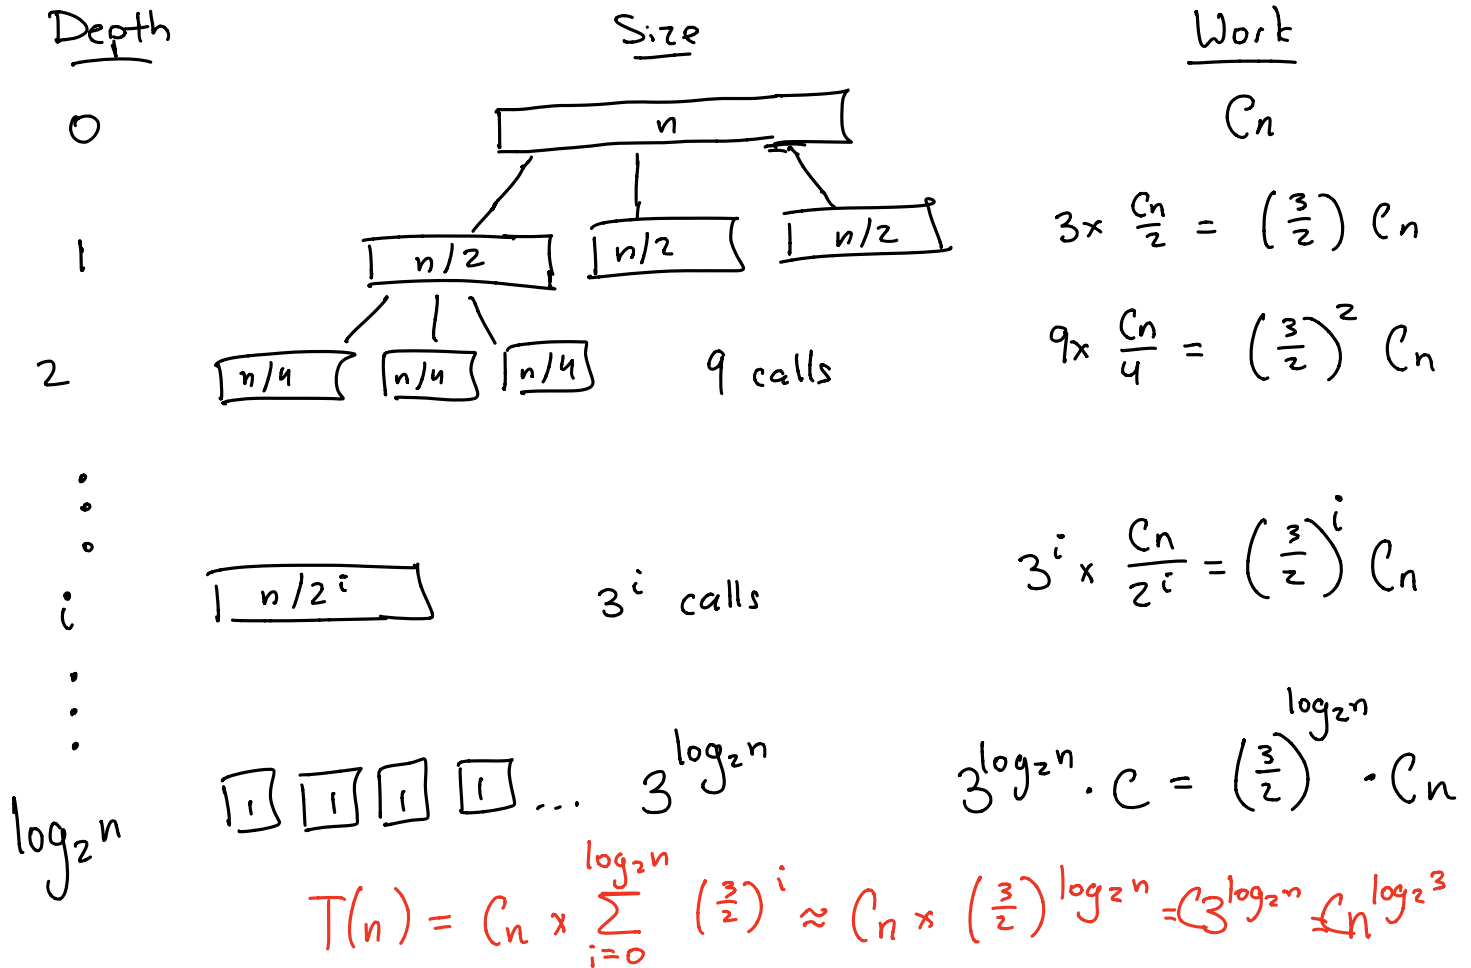 Depth Size Work
0 n Cn
1 n/2 n/2 n/2 3 × Cn/2 = (3/2) Cn
2 n/4 n/4 n/4 9 calls 9 × Cn/4 = (3/2)^2 Cn
i n/2^i 3^i calls 3^i × Cn/2^i = (3/2)^i Cn
log₂n 1 1 1 1 ... 3^log₂n 3^log₂n · C = (3/2)^log₂n · Cn
T(n) = Cn × ∑_{i=0}^{log₂n} (3/2)^i ≈ Cn × (3/2)^log₂n = C3^log₂n = Cn^log₂3